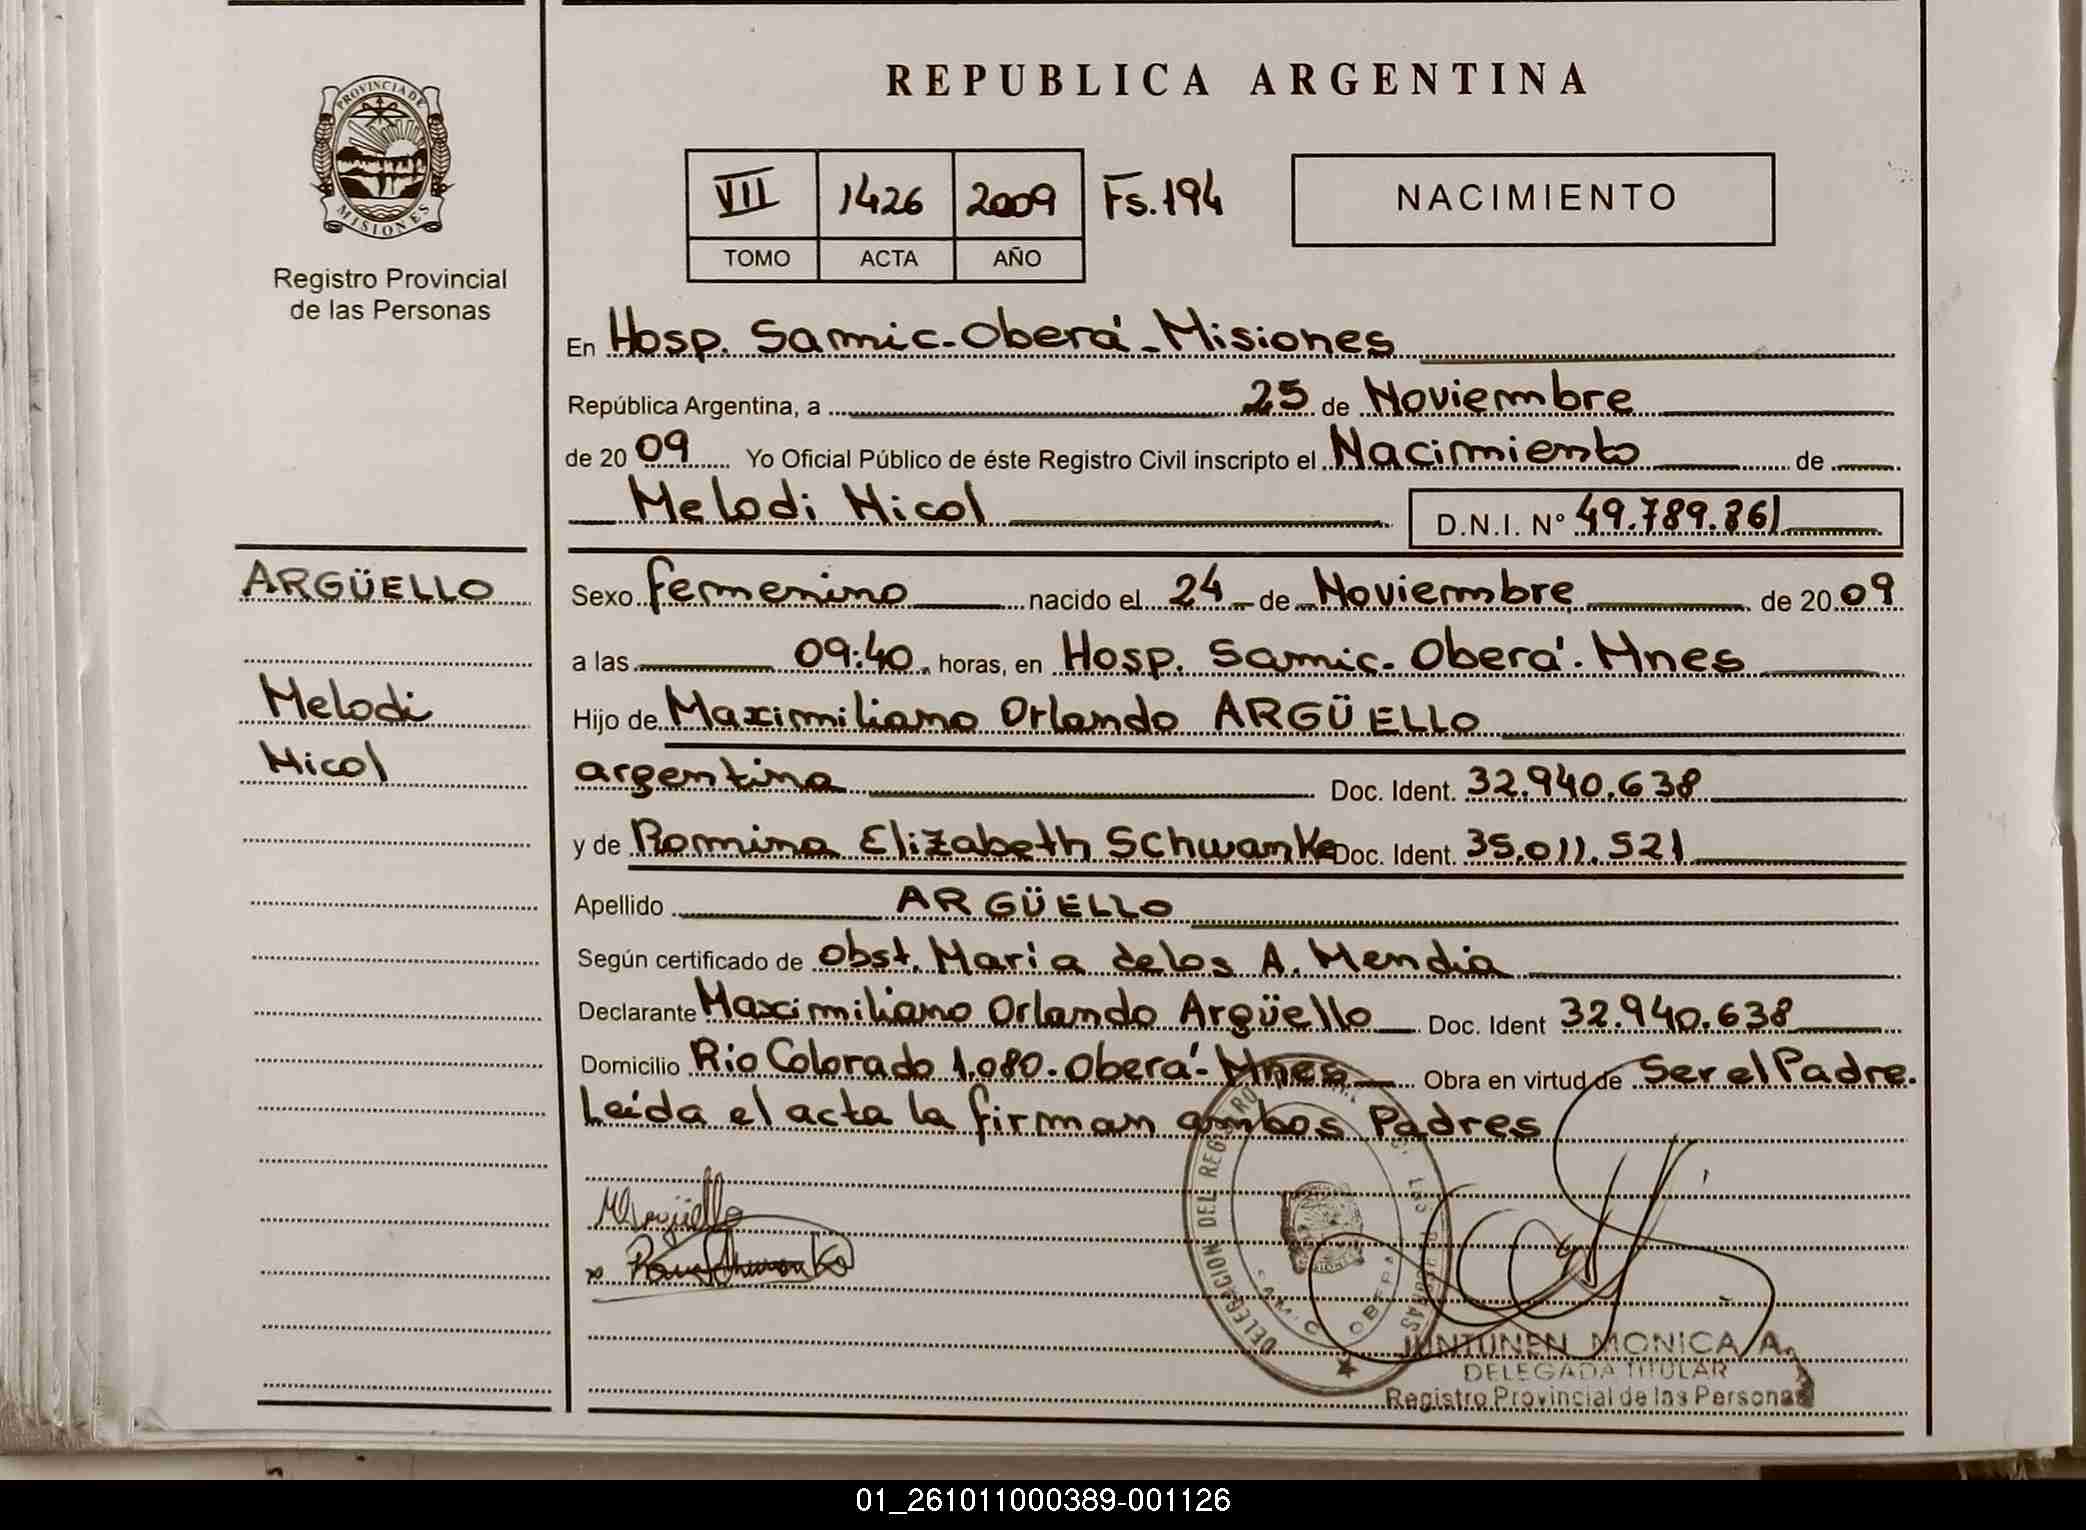 PROVINCIA DE
MISIONES
Registro Provincial
de las Personas
REPUBLICA ARGENTINA
VII 1426 2009 Fs.194
TOMO ACTA AÑO
NACIMIENTO
En Hosp. Samic-Oberá-Misiones
República Argentina, a 25 de Noviembre
de 20 09 Yo Oficial Público de éste Registro Civil inscripto el Nacimiento de
Melodi Nicol D.N.I. N° 49.789.861
ARGÜELLO
Melodi
Nicol
Sexo femenino nacido el 24 de Noviembre de 20 09
a las 09:40 horas, en Hosp. Samic. Oberá. Mnes
Hijo de Maximiliano Orlando ARGÜELLO
argentina Doc. Ident. 32.940.638
y de Romina Elizabeth Schwanke Doc. Ident. 35.011.521
Apellido ARGÜELLO
Según certificado de Obst. Maria delos A. Mendia
Declarante Maximiliano Orlando Argüello Doc. Ident 32.940.638
Domicilio Rio Colorado 1.080. Oberá- Mnes Obra en virtud de Ser el Padre.
Leída el acta la firman ambos Padres
MArgüello
DELEGACION DEL REGISTRO
OBERA
JUNTUNEN MONICA A.
DELEGADA TITULAR
Registro Provincial de las Personas
01_261011000389-001126